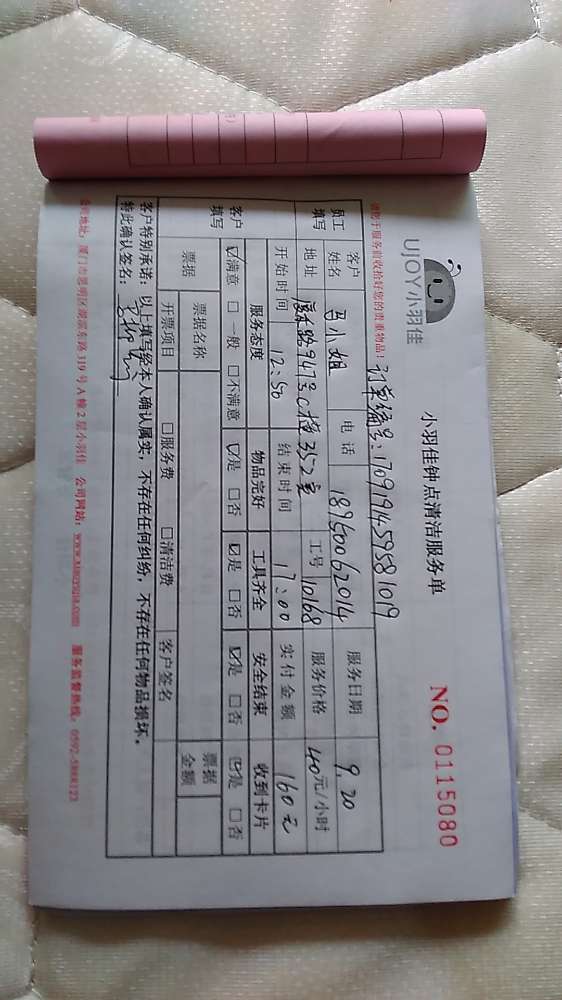 UJOY小羽佳
小羽佳钟点清洁服务单
NO. 0115080
请您于服务前收拾好您的贵重物品!
订单编号:1709191459581019
员工填写
客户姓名 马小姐 电话 18950062014 服务日期 9.20
地址 9473C栋352室 工号 10168 服务价格 40元/小时
开始时间 12:50 结束时间 17:00 实付金额 160元
客户填写
服务态度 物品完好 工具齐全 安全结束 收到卡片
☑满意 □一般 □不满意 ☑是 □否 ☑是 □否 ☑是 □否 ☑是 □否
票据 票据名称 票据金额
开票项目 □服务费 □清洁费 客户签名
客户特别承诺:以上填写经本人确认属实,不存在任何纠纷,不存在任何物品损坏。
特此确认签名:
公司地址:厦门市思明区 319号A幢2层小羽佳 公司网站: 服务监督热线: